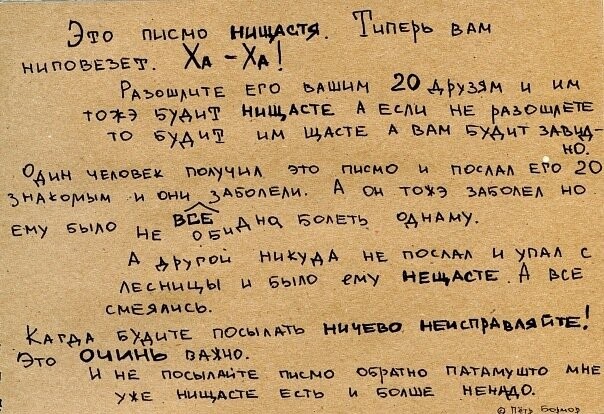 Это писмо нищастя. Типерь вам
ниповезет. Ха-Ха!
Разошлите его вашим 20 друзям и им
тожэ будит нищасте а если не разошлёте
то будит им щасте а вам будит завид-
но.
Один человек получил это писмо и послал его 20
знакомым и они заболели. А он тожэ заболел но
все
ему было не обидна болеть однаму.
А другой никуда не послал и упал с
лесницы и было ему нещасте. А все
смеялись.
Кагда будите посылать ничево неисправляйте!
Это очинь важно.
И не посылайте писмо обратно патамушто мне
уже нищасте есть и болше ненадо.
© Пётр Бормор